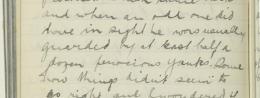 and when an odd one did
come in sight he was usually
guarded by at least half a
dozen ferocious Yanks. Some
how things didn't seem to
go right and I wondered if